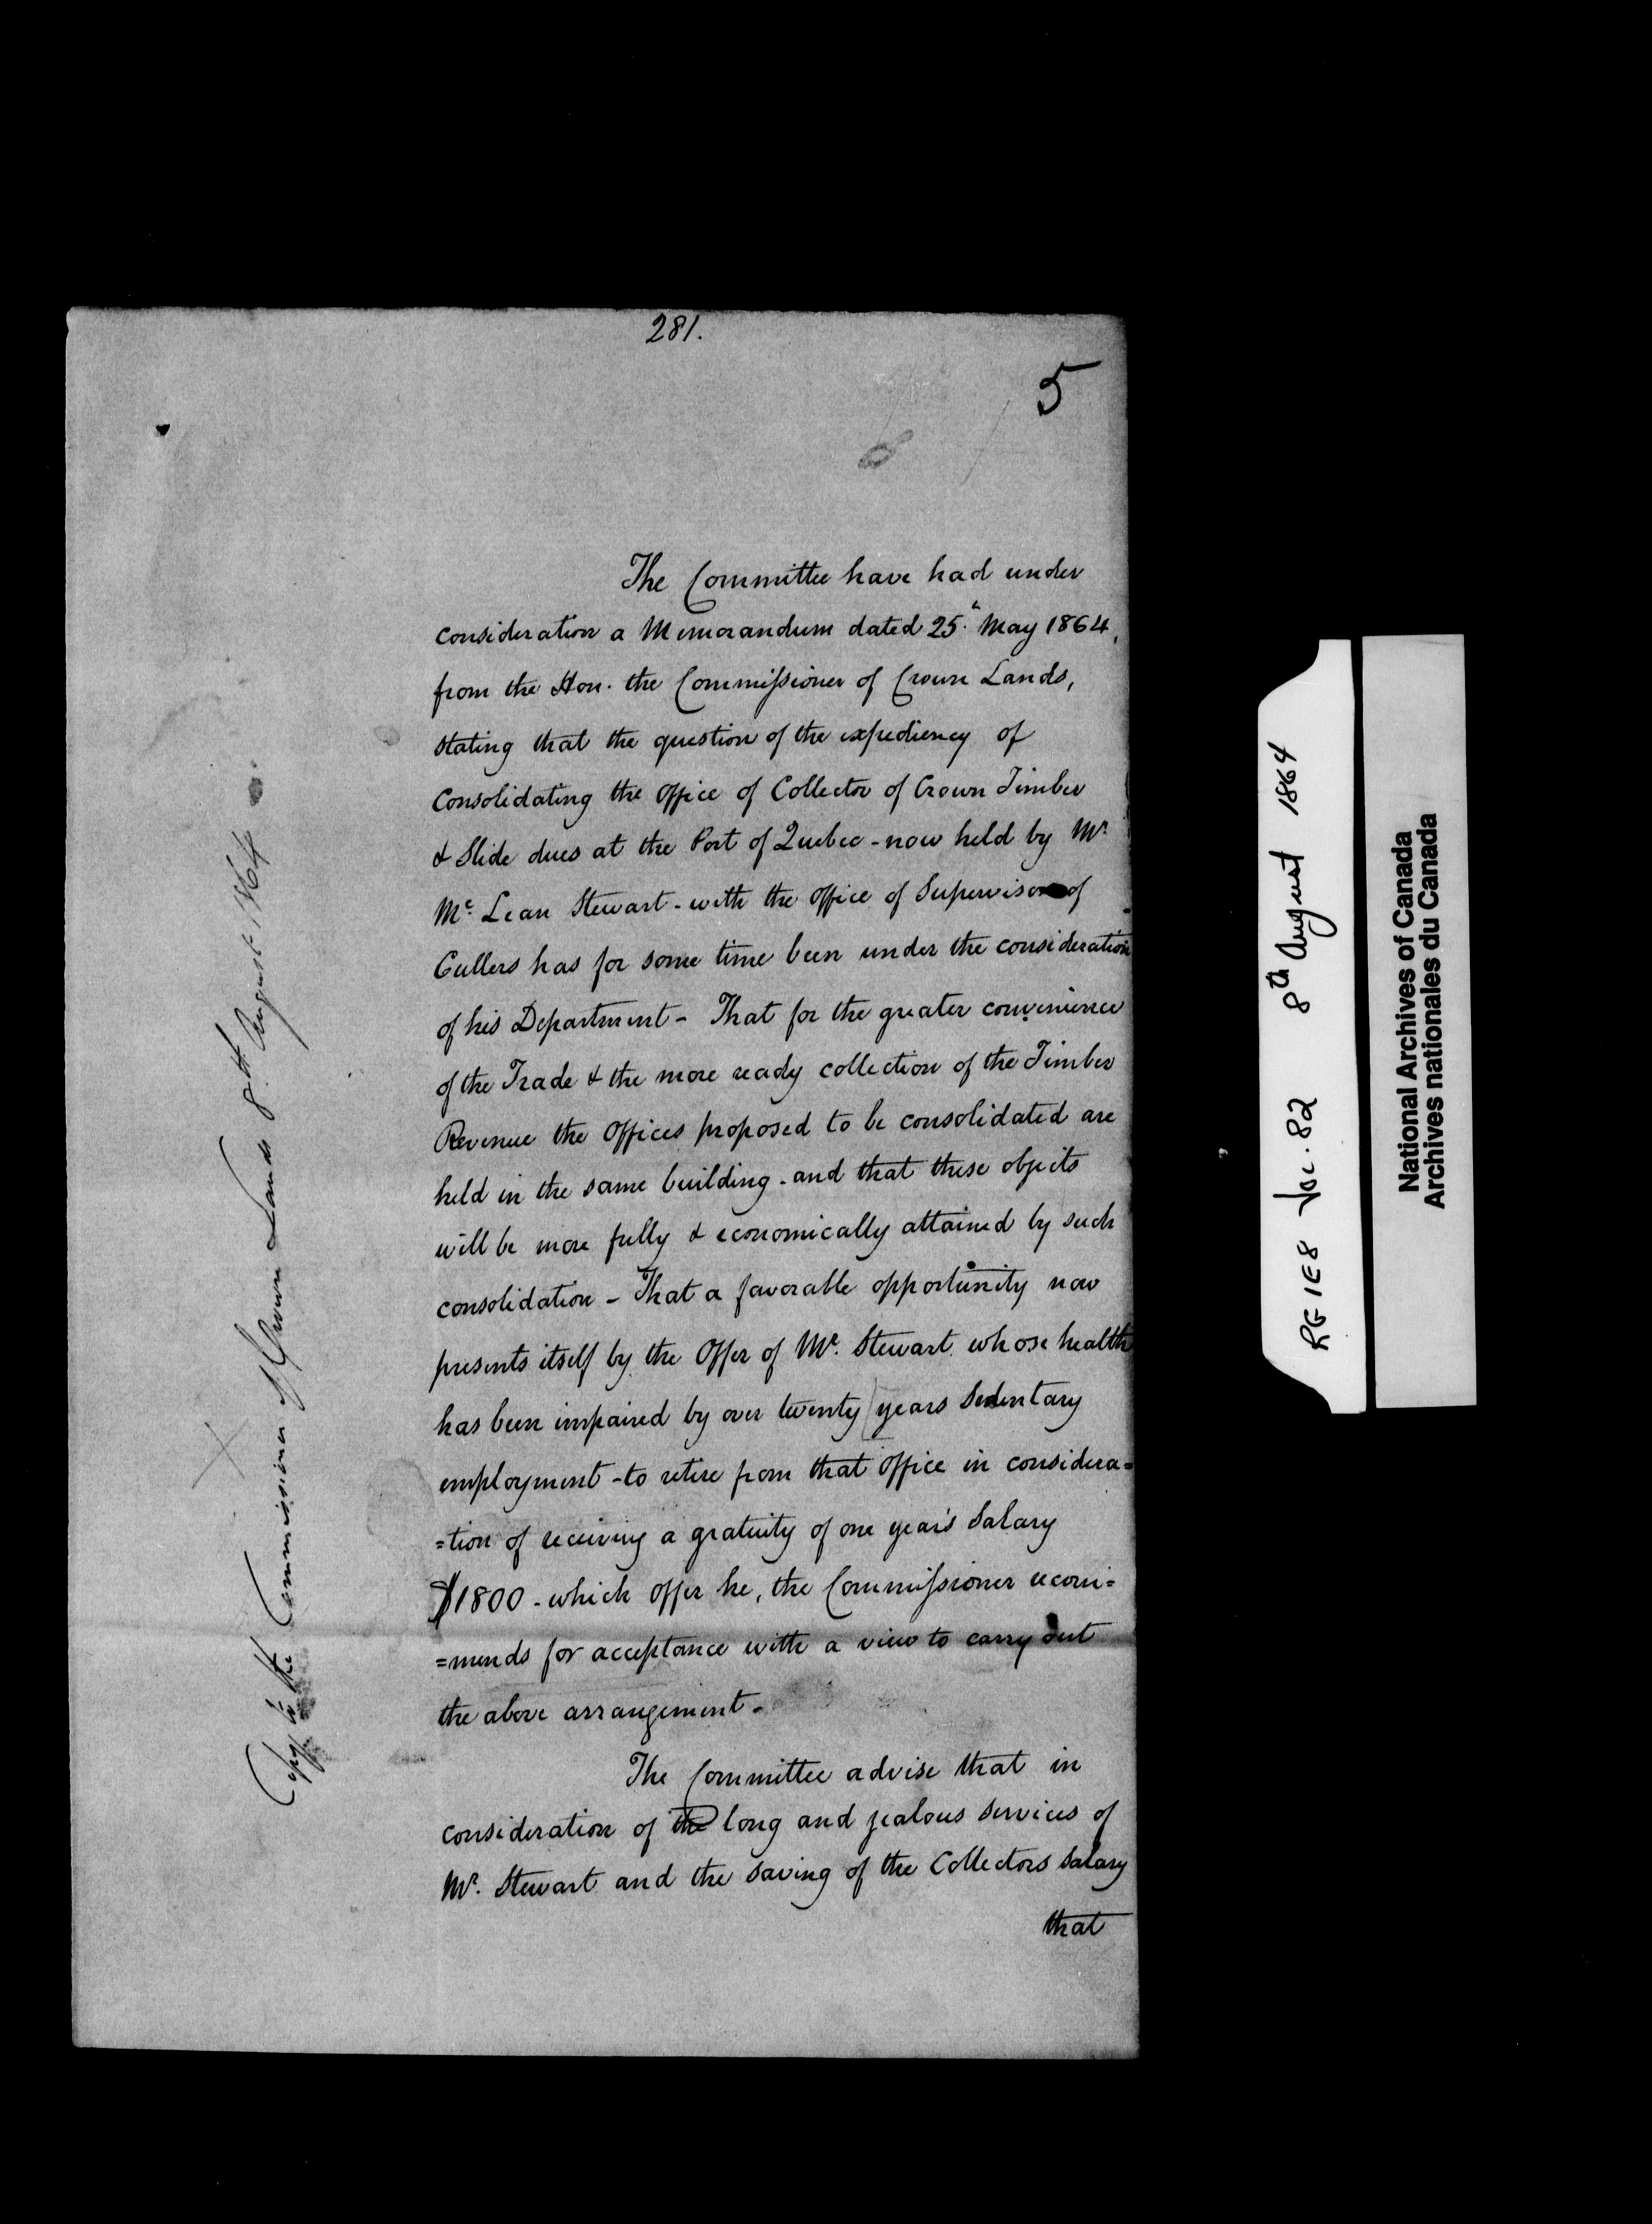 281.
5
The Committee have had under
consideration a Memorandum dated 25th May 1864,
from the Hon. the Commissioner of Crown Lands,
stating that the question of the expediency of
Consolidating the Office of Collector of Crown Timber
& Slide dues at the Port of Quebec - now held by Mr.
Mc. Lean Stewart - with the Office of Supervisor of
Cullers has for some time been under the consideration
of his Department - That for the greater convenience
of the Trade & the more ready collection of the Timber
Revenue the Offices proposed to be consolidated are
held in the same building - and that these objects
will be more fully & economically attained by such
consolidation - That a favorable opportunity now
presents itself by the Offer of Mr. Stewart whose health
has been impaired by over twenty years Sedentary
employment - to retire from that Office in considera=
=tion of receiving a gratuity of one year's Salary
$1800 - which offer he, the Commissioner recom=
=mends for acceptance with a view to carry out
the above arrangement -
The Committee advise that in
consideration of the long and zealous services of
Mr. Stewart and the saving of the Collectors Salary
that
Copy to the Commissioner of Crown Lands 8th. August 1864
RG 1E8 Vol. 82 8th August 1864
National Archives of Canada
Archives nationales du Canada